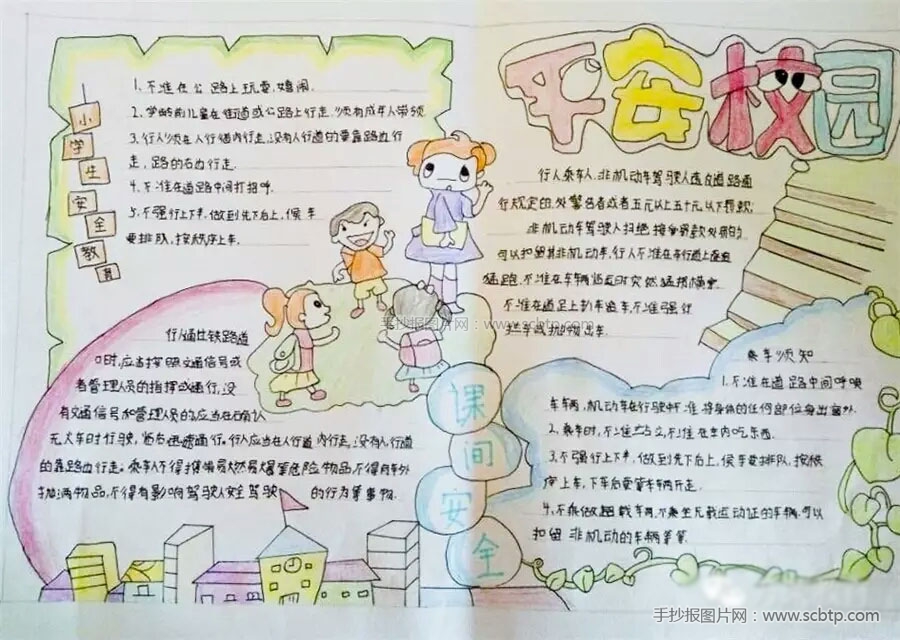 平安校园
小学生安全教育
1、不准在公路上玩耍、嬉闹。
2、学龄前儿童在街道或公路上行走,须有成年人带领
3、行人须在人行道内行走,没有人行道的要靠路边行
走,路的右边行走。
4、不准在道路中间打招呼。
5、不强行上下车,做到先下后上,候车
要排队,按秩序上车。
行人乘车人、非机动车驾驶人违反道路通
行规定的,处警告或者五元以上五十元以下罚款;
非机动车驾驶人拒绝接受罚款处罚的
可以扣留其非机动车,行人不准在车行道上
猛跑,不准在车辆临近时突然猛拐横穿
不准在道足上扒车追车,不准强行
拦车或抛物出车.
行人通过铁路道
口时,应当按照交通信号或
者管理人员的指挥或通行,没
有交通信号和管理人员的,应当在确认
无火车时行驶,然后迅速通行。行人应当在人行道内行走,没有人行道
的靠路边行走。乘车人不得携带易燃易爆等危险物品,不得向车外
抛洒物品,不得有影响驾驶人安全驾驶的行为等事物.
课间安全
乘车须知
1、不准在道路中间呼唤
车车辆,机动车在行驶中不准将身体的任何部位身出窗外.
2、乘车时,不准站立,不准在车内吃东西.
3、不强行上下车,做到先下后上,候车要排队,按秩
序上车,下车后要等车辆开走.
4、不乘做超载车辆,不乘坐无载运动证的车辆.可以
扣留非机动的车辆等等
手抄报图片网:www.scbtp.com
手抄报图片网:www.scbtp.com